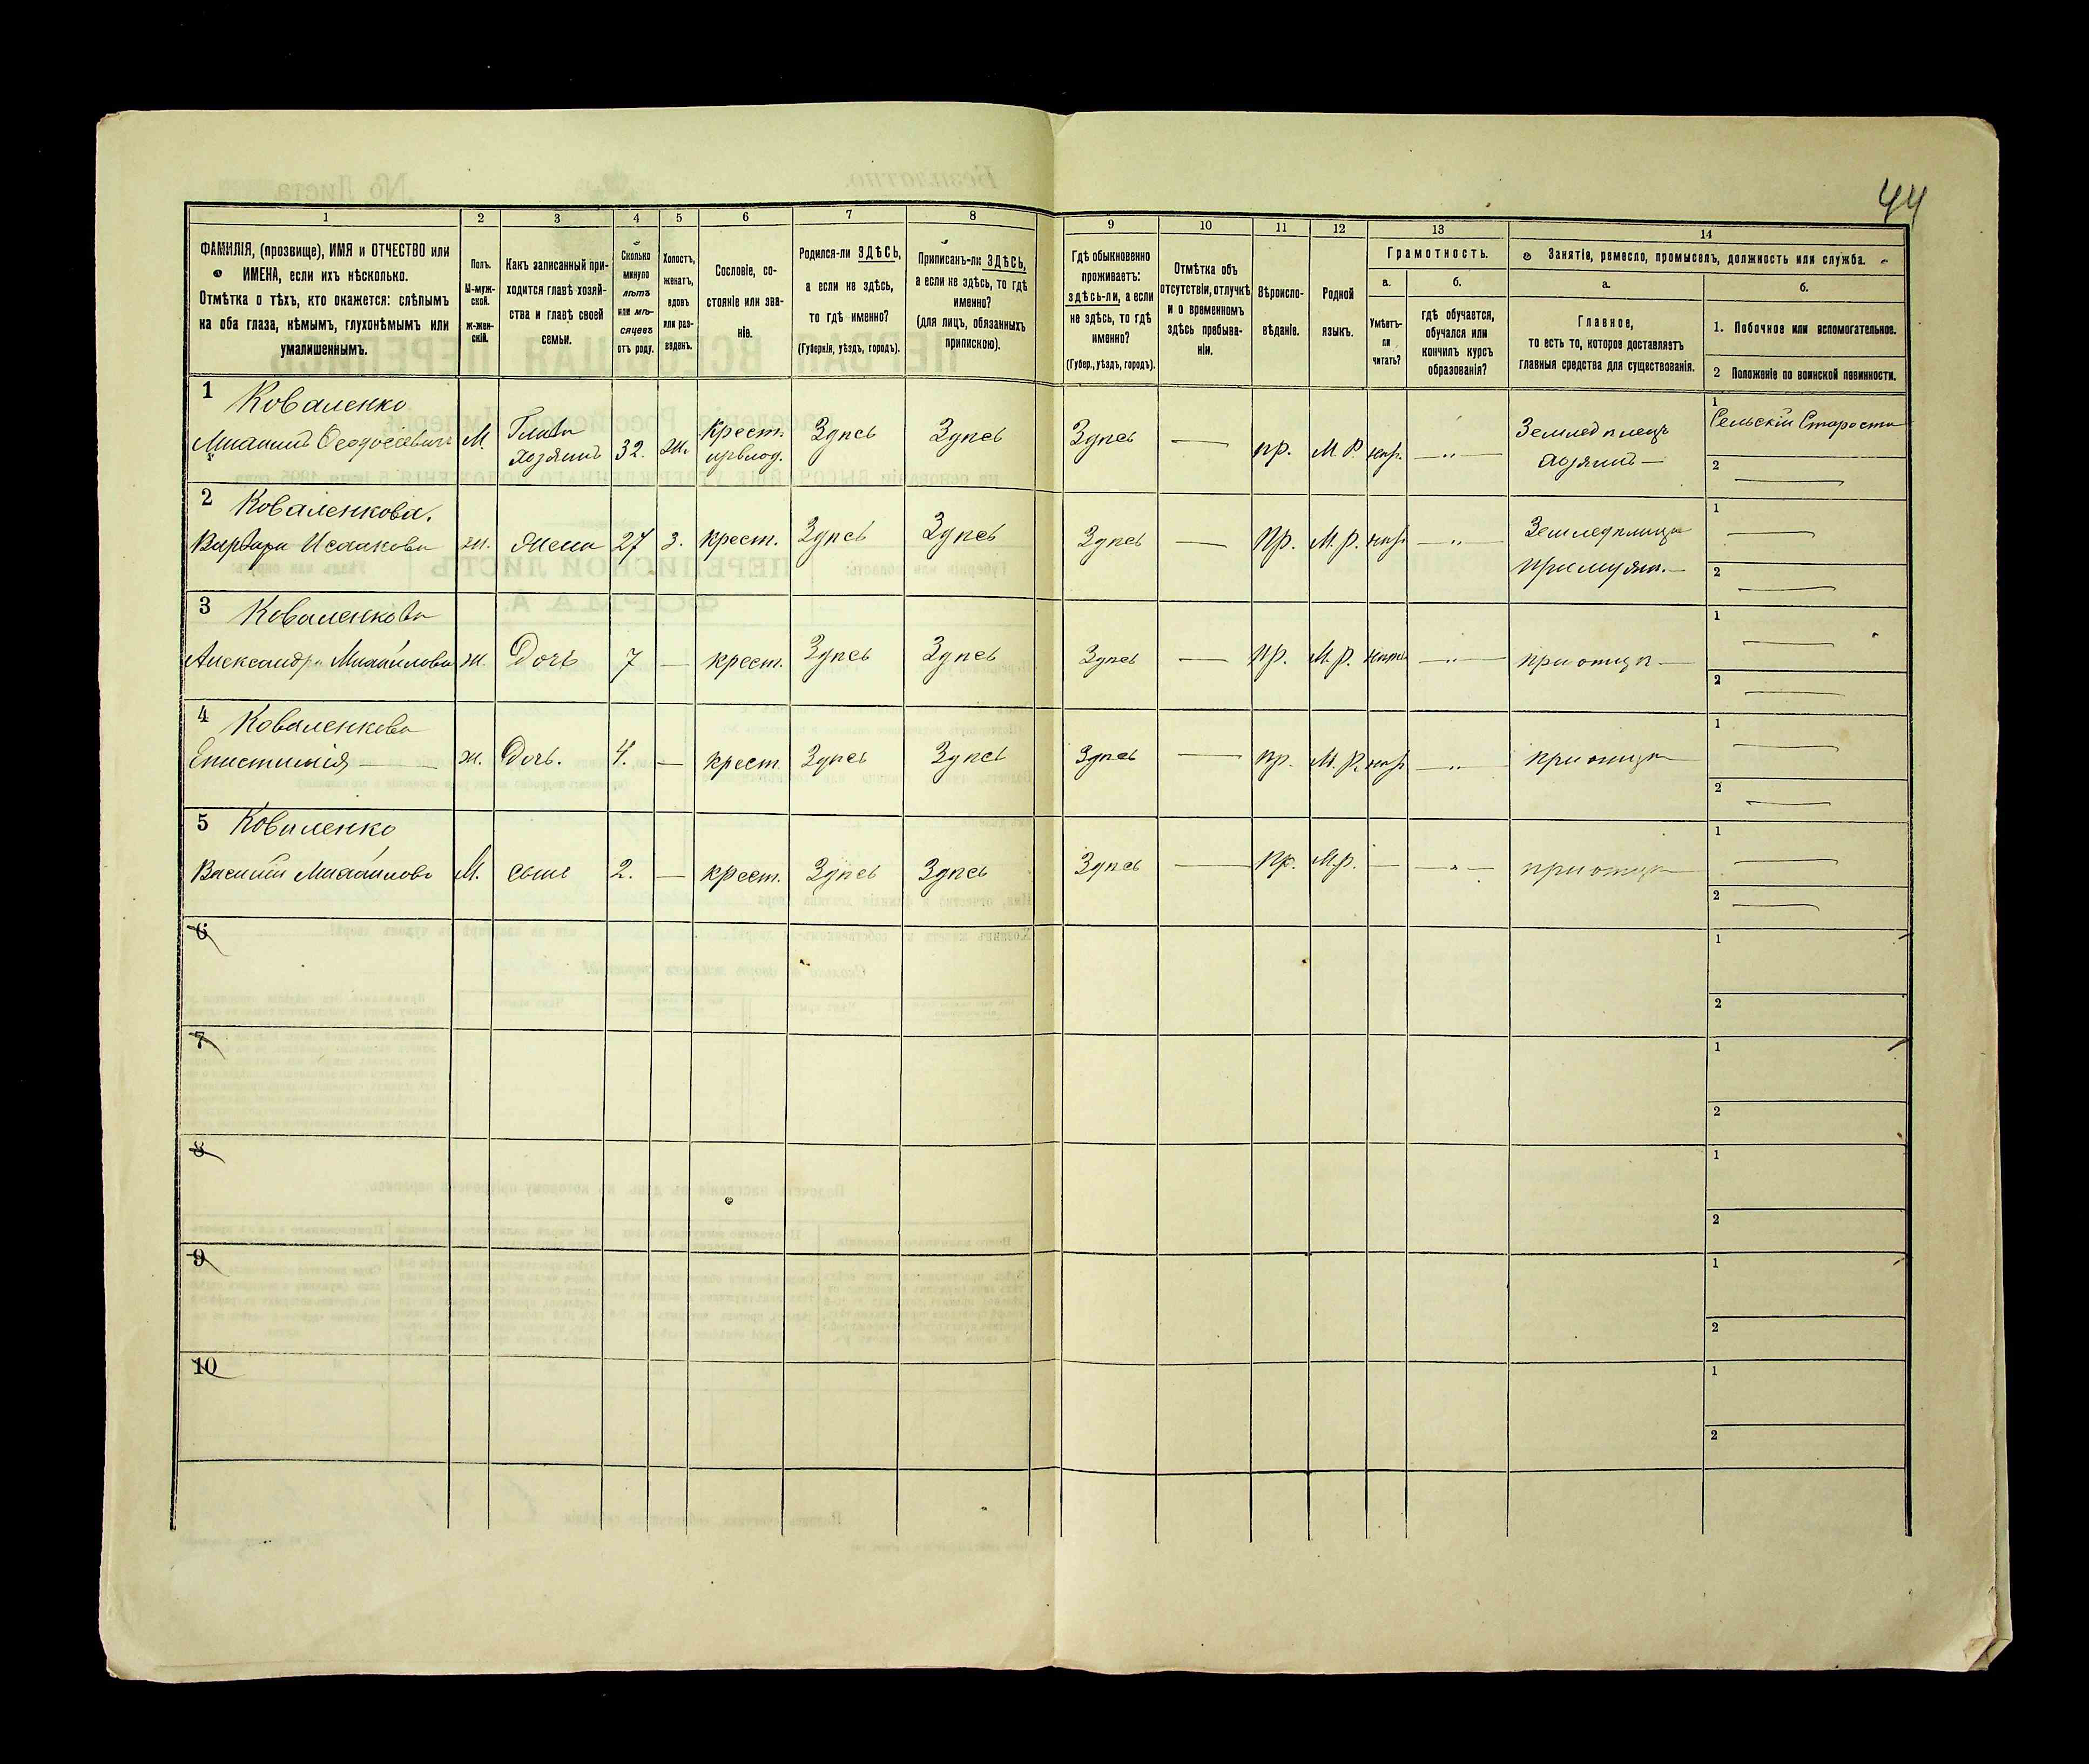 44
1 2 3 4 5 6 7 8 9 10 11 12 13 14
ФАМИЛІЯ, (прозвище), ИМЯ и ОТЧЕСТВО или ИМЕНА, если ихъ нѣсколько.
Отмѣтка о тѣхъ, кто окажется: слѣпымъ на оба глаза, нѣмымъ, глухонѣмымъ или умалишеннымъ.
Полъ.
М-муж-
ской.
ж-жен-
скій.
Какъ записанный при-
ходится главѣ хозяй-
ства и главѣ своей
семьи.
Сколько
минуло
лѣтъ
или мѣ-
сяцевъ
отъ роду.
Холостъ,
женатъ,
вдовъ
или раз-
веденъ.
Сословіе, со-
стояніе или зва-
ніе.
Родился-ли ЗДѢСЬ,
а если не здѣсь,
то гдѣ именно?
(Губернія, уѣздъ, городъ).
Приписанъ-ли ЗДѢСЬ,
а если не здѣсь, то гдѣ
именно?
(для лицъ, обязанныхъ
припискою).
Гдѣ обыкновенно
проживаетъ:
здѣсь-ли, а если
не здѣсь, то гдѣ
именно?
(Губер., уѣздъ, городъ).
Отмѣтка объ
отсутствіи, отлучкѣ
и о временномъ
здѣсь пребыва-
ніи.
Вѣроиспо-
вѣданіе.
Родной
языкъ.
Грамотность.
а.
Умѣетъ-
ли
читать?
б.
гдѣ обучается,
обучался или
кончилъ курсъ
образованія?
Занятіе, ремесло, промыселъ, должность или служба.
а.
Главное,
то есть то, которое доставляетъ
главныя средства для существованія.
б.
1. Побочное или вспомогательное.
2 Положеніе по воинской повинности.
1 Коваленко
Михаилъ Ѳеодосіевичъ М. Глава хозяинъ 32. ж. крест. Здѣсь Здѣсь Здѣсь — пр. М. Р. — „ — Земледѣлецъ хозяинъ — 1 Сельскій Староста
2 —
2 Коваленкова.
Варвара Исаакова ж. Жена 27 З. крест. Здѣсь Здѣсь Здѣсь — Пр. М. Р. — „ — Земледѣлица при мужѣ. — 1 —
2 —
3 Коваленкова
Александра Михайлова ж. Дочь 7 — крест. Здѣсь Здѣсь Здѣсь — Пр. М. Р. — „ — при отцѣ — 1 —
2 —
4 Коваленкова
Епистимія — ж. Дочь. 4. — крест. Здѣсь Здѣсь Здѣсь — пр. М. Р. — „ — при отцѣ 1 —
2 —
5 Коваленко
Василій Михайловъ М. сынъ 2. — крест. Здѣсь Здѣсь Здѣсь — Пр. М. р. — — „ — при отцѣ 1 —
2 —
6 1
2
7 1
2
8 1
2
9 1
2
10 1
2